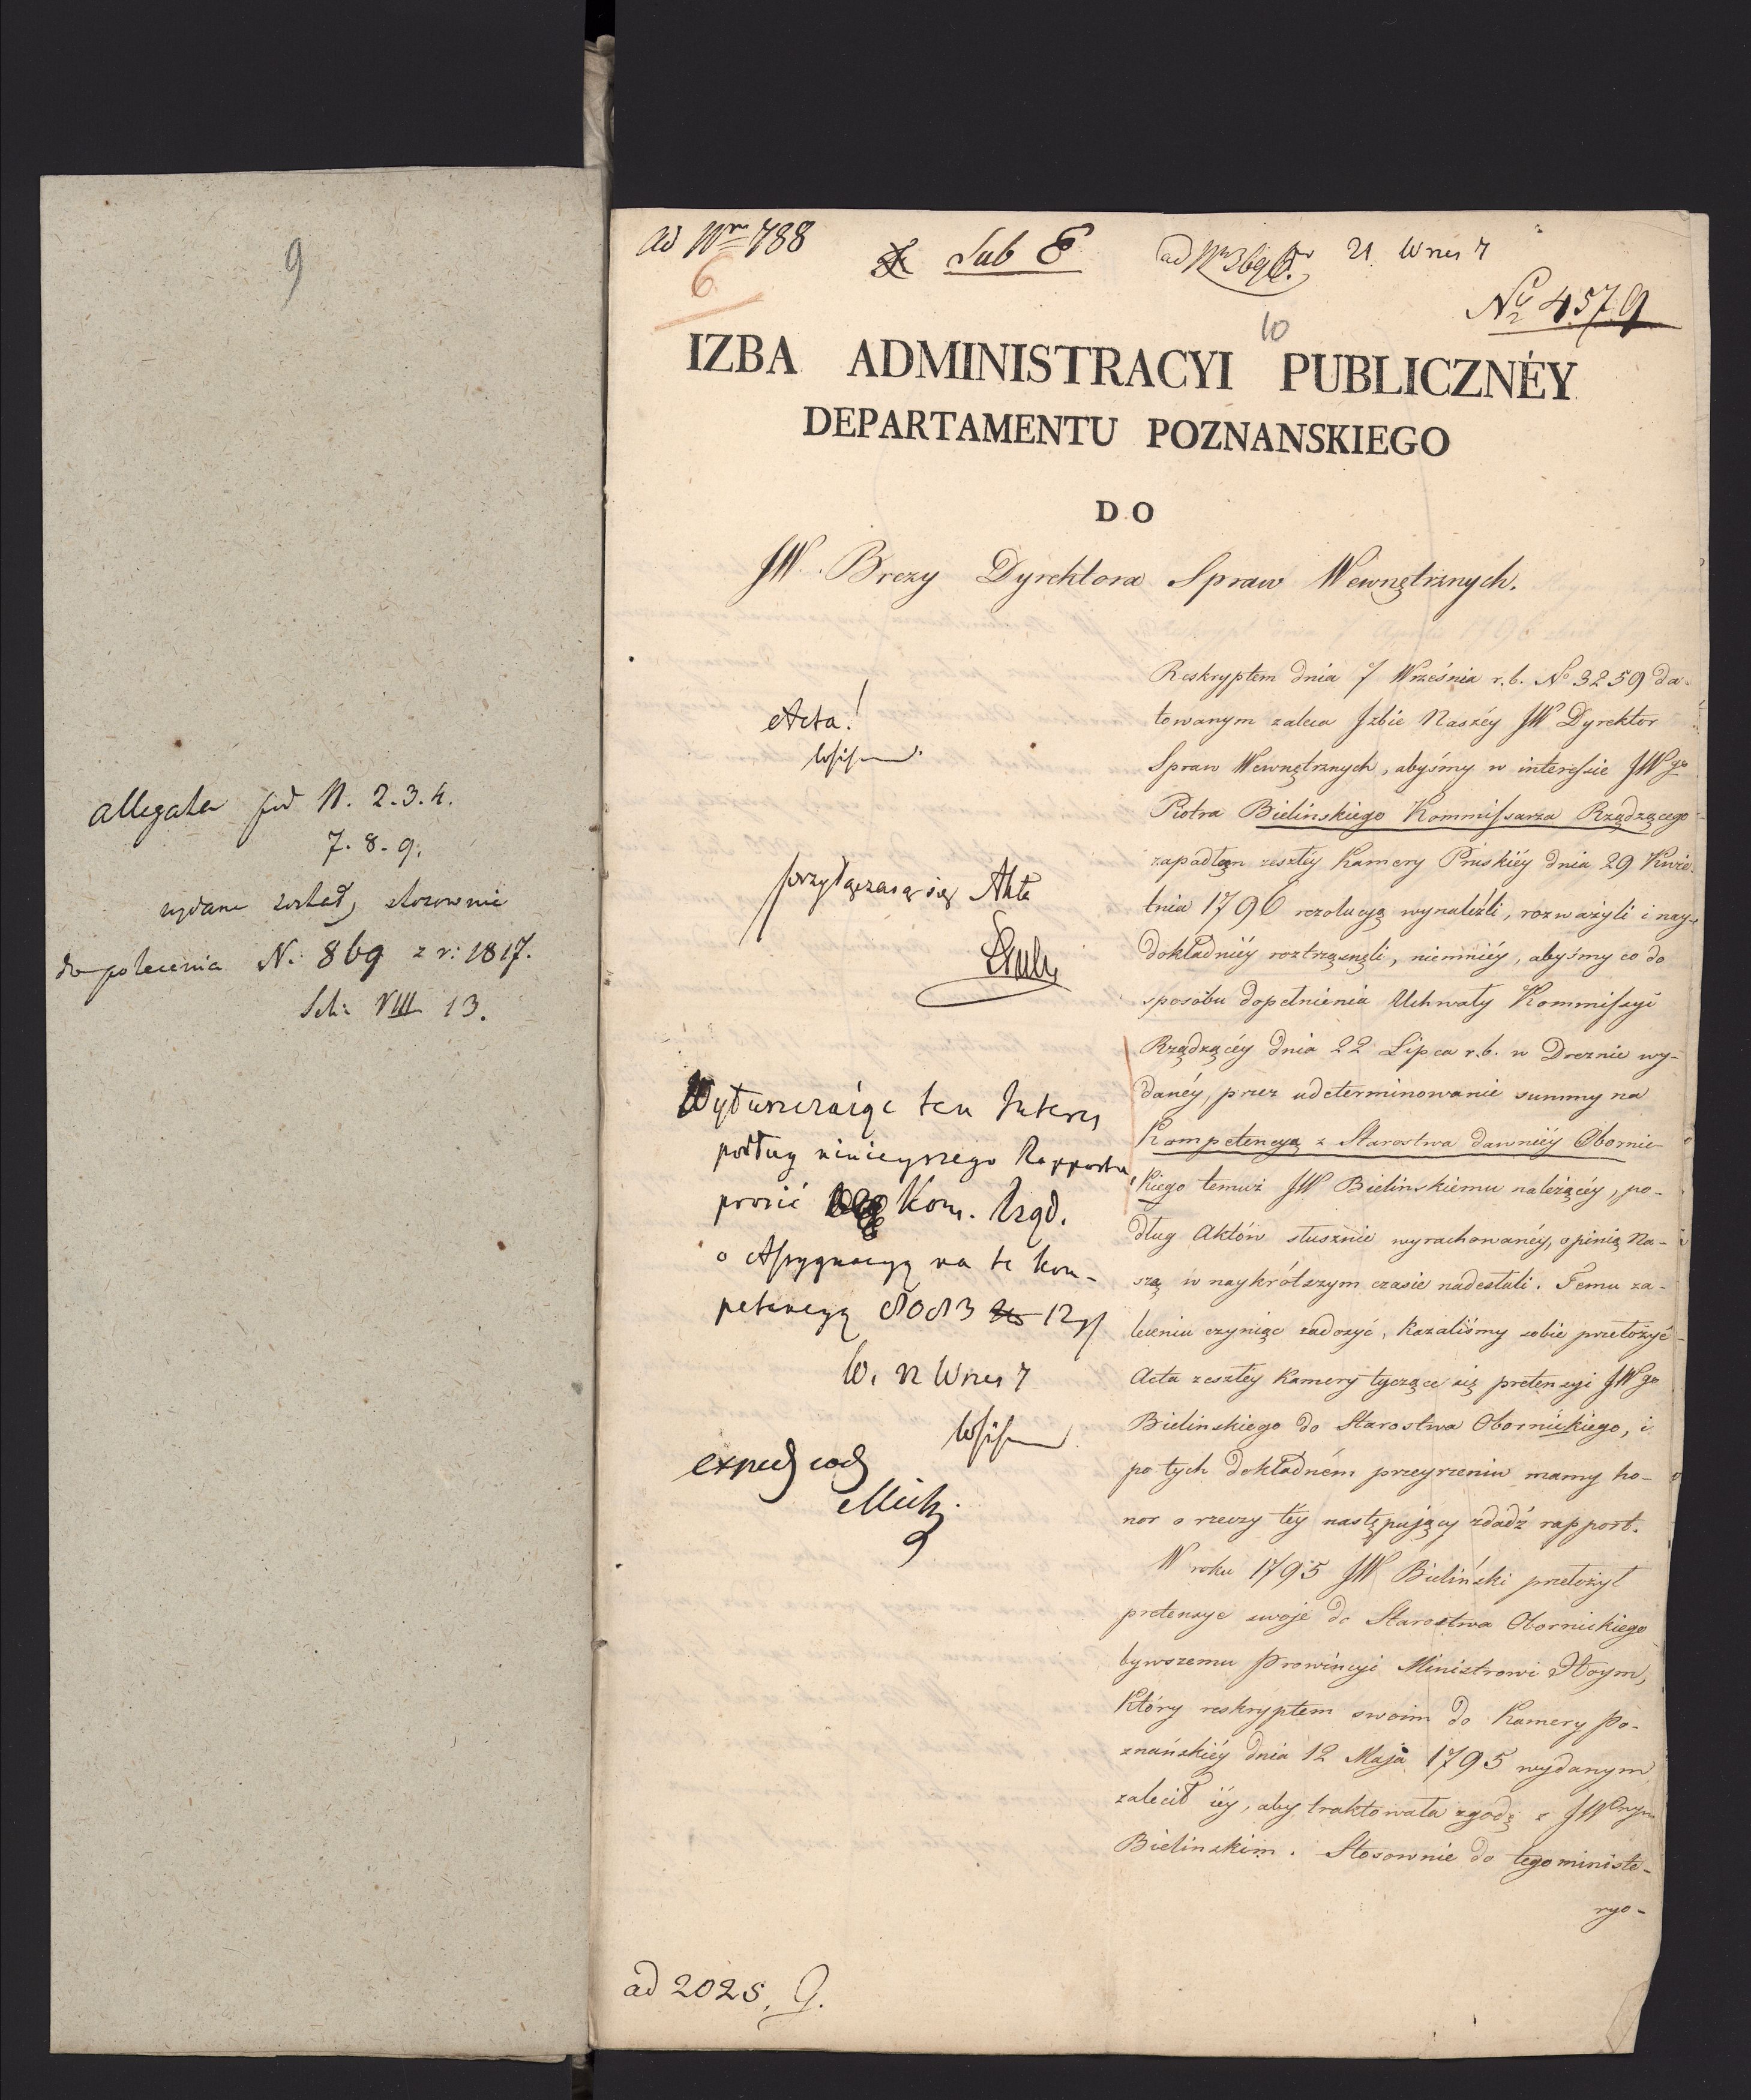 9
allegata sub N. 2.3.4.
7.8.9.
wydane został, stosownie
do polecenia N. 869 z r: 1817.
Sch: VIII 13.
ad Nrm 788
6.
Sub E
21 Wrześ 7
No 4579
10
IZBA ADMINISTRACYI PUBLICZNÉY
DEPARTAMENTU POZNANSKIEGO
DO
JW. Brezy Dyrektora Spraw Wewnętrznych.
Acta!
przyłączaią się Akta
Wyłuszczaiąc ten Interes
podług ninieyszego Rapportu,
prosić Kom. Rząd.
o Assygnacyą na te kom-
petencyą 8083 12
W. 22 Wrześ 7
exped eod
ad 2025, G.
Reskryptem dnia 7 Września r.b. No 3259 da-
towanym zaleca Jzbie Naszéy JW Dyrektor
Spraw Wewnętrznych, abyśmy w interessie JWgo
Piotra Bielinskiego Kommissarza Rządzącego
zapadłą zeszłéy Kamery Pruskiéy dnia 29 Kwie-
tnia 1796 rezolucyą wynaleźli, rozważyli i nay-
dokładniéy roztrząsnęli, niemniéy, abyśmy co do
sposobu dopełnienia Uchwały Kommissyi
Rządzącéy dnia 22 Lipca r.b. w Dreznie wy-
danéy, przez udeterminowanie summy na
Kompetencyą z Starostwa dawniéy Obornic-
kiego temuż JW Bielinskiemu należącéy, po-
dług Aktów słusznie wyrachowanéy, opinią Na-
szą w naykrótszym czasie nadesłali. Temu za-
leceniu czyniąc zadosyć, kazaliśmy sobie przełożyć
Acta zeszłéy Kamery tyczące się pretensyi JWgo
Bielinskiego do Starostwa Obornickiego, i
po tych dokładném przeyrzeniu mamy ho-
nor o rzeczy téy następujący zdadź rapport.
W roku 1795 JW Bieliński przełożył
pretensye swoje do Starostwa Obornickiego
bywszemu Prowincyi Ministrowi Hoym,
który reskryptem swoim do Kamery Po-
znańskiéy dnia 12 Maja 1795 wydanym
zalecił iéy, aby traktowała zgodę z JWnym
Bielinskim. Stosownie do tego ministe-
ryo-